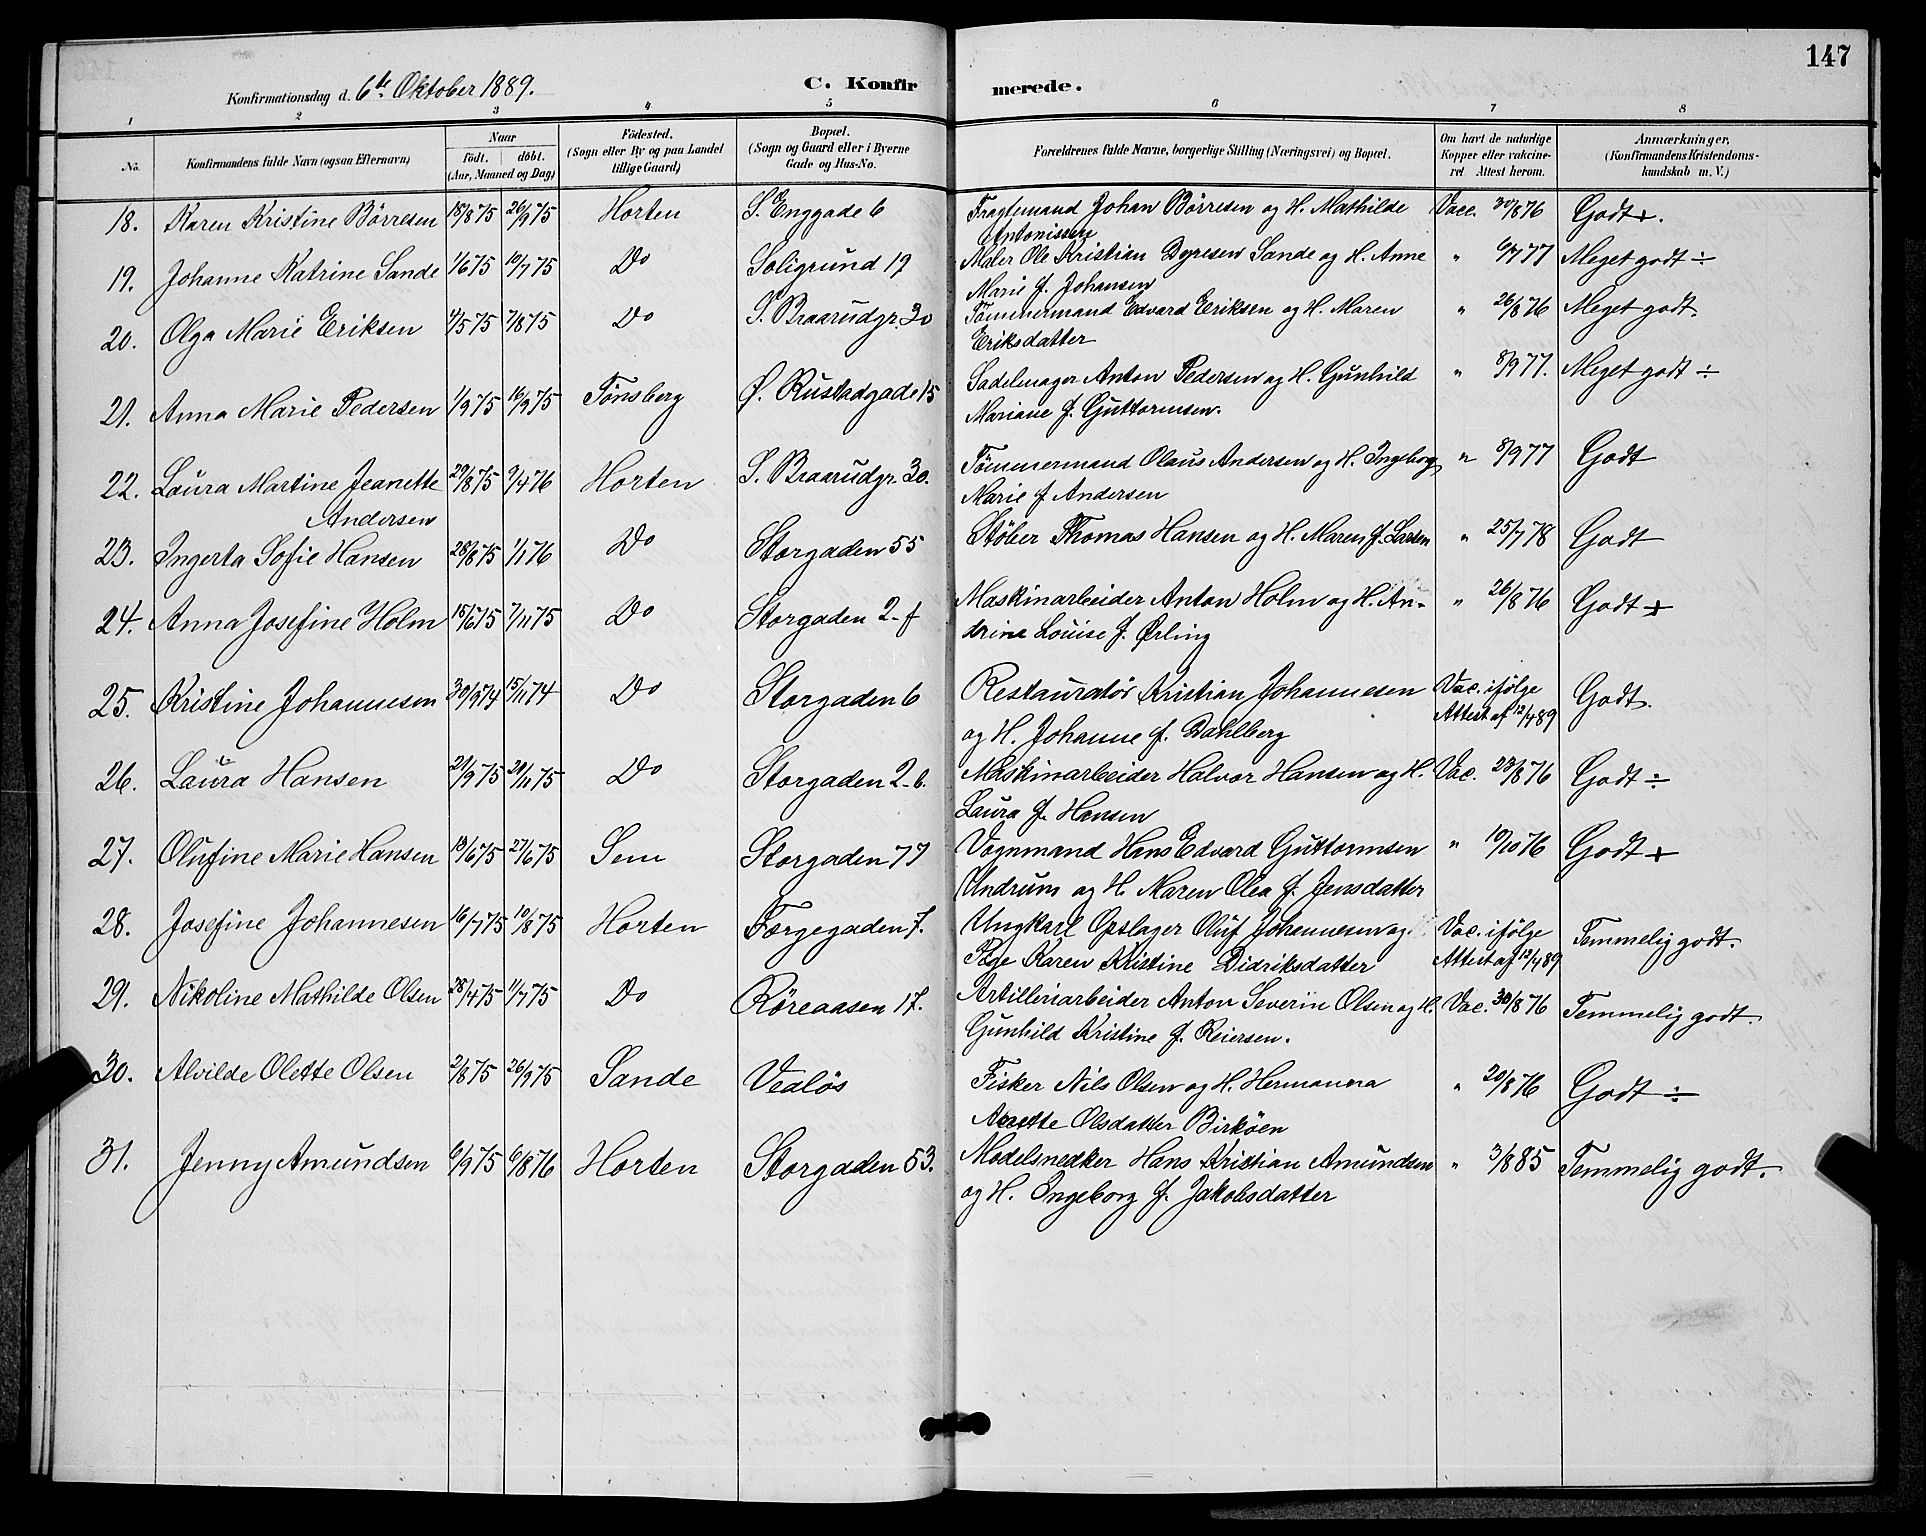 147
Konfirmationsdag d. 6te Oktober 1889. C. Konfirmerede.
1 2 3 4 5 6 7 8
No. Konfirmandens fulde Navn (ogsaa Efternavn) Naar født. døbt. (Aar, Maaned og Dag) Födested. (Sogn eller By og paa Landet tillige Gaard) Bopæl. (Sogn og Gaard eller i Byerne Gade og Hus-No. Forældrenes fulde Navne, borgerlige Stilling (Næringsvei) og Bopæl. Om havt de naturlige Kopper eller vakcineret Attest herom. Anmærkninger, (Konfirmandens Kristendomskundskab m. V.)
18. Karen Kristine Börresen 18/8 75 26/9 75 Horten S. Enggade 6 Fragtemand Johan Börresen og H. Mathilde Vacc. 30/8 76 Godt +.
Antonissen
19. Johanne Katrine Sande 1/6 75 10/7 75 Do Soligrund 19 Maler Ole Kristian Dyresen Sande og H. Anne " 6/7 77 Meget godt ÷
Marie f. Johansen
20. Olga Marie Eriksen 4/5 75 7/8 75 Do S. Braarudgr. 30 Tömmermand Edvard Eriksen og H. Maren " 26/8 76 Meget godt.
Eriksdatter
21. Anna Marie Pedersen 1/9 75 16/9 75 Tønsberg Ø. Rustadgade 15 Sadelmager Anton Pedersen og H. Gunhild " 8/9 77. Meget godt ÷
Mariane f. Guttormsen.
22. Laura Martine Jeanette 29/8 75 9/4 76 Horten S. Braarudgr. 30. Tömmermand Olaus Andersen og H. Ingeborg " 8/9 77 Godt
Andersen Marie f Andersen
23. Ingerta Sofie Hansen 28/8 75 1/1 76 Do Storgaden 55 Støber Thomas Hansen og H. Maren f. Larsen " 25/7 78 Godt
24. Anna Josefine Holm 15/6 75 7/11 75 Do Storgaden 2-f Maskinarbeider Anton Holm og H. An- " 26/8 76 Godt +
drine Louise f. Ørling
25. Kristine Johannesen 30/9 74 15/11 74 Do Storgaden 6 Restauratör Kristian Johannesen Vac. ifölge Godt.
og H. Johanne f. Dahlberg Attest af 12/4 89
26. Laura Hansen 21/9 75 20/11 75 Do Storgaden 2-b. Maskinarbeider Halvor Hansen og H. Vac. 23/8 76 Godt ÷
Laura f. Hansen
27. Olufine Marie Hansen 13/6 75 27/6 75 Sem Storgaden 77 Vognmand Hans Edvard Guttormsen " 10/10 76 Godt +
Undrum og H. Maren Olea f. Jensdatter
28. Josefine Johannesen 16/7 75 10/8 75 Horten Færgegaden 7. Ungkarl Opslager Oluf Johannesen og Vac. ifölge Temmelig godt.
Pige Karen Kristine Didriksdatter Attest af 12/4 89
29. Nikoline Mathilde Olsen 28/4 75 11/7 75 Do Röreaasen 17. Artilleriarbeider Anton Severin Olsen og H. Vac. 30/8 76 Temmelig godt.
Gunhild Kristine f. Reiersen.
30. Alvilde Olette Olsen 2/8 75 26/9 75 Sande Vealös Fisker Nils Olsen og H. Hermanna " 20/8 76 Godt ÷
Anette Olsdatter Birköen
31. Jenny Amundsen 6/9 75 6/8 76 Horten Storgaden 53. Modelsnedker Hans Kristian Amundsen " 3/8 85 Temmelig godt.
og H. Ingeborg f. Jakobsdatter